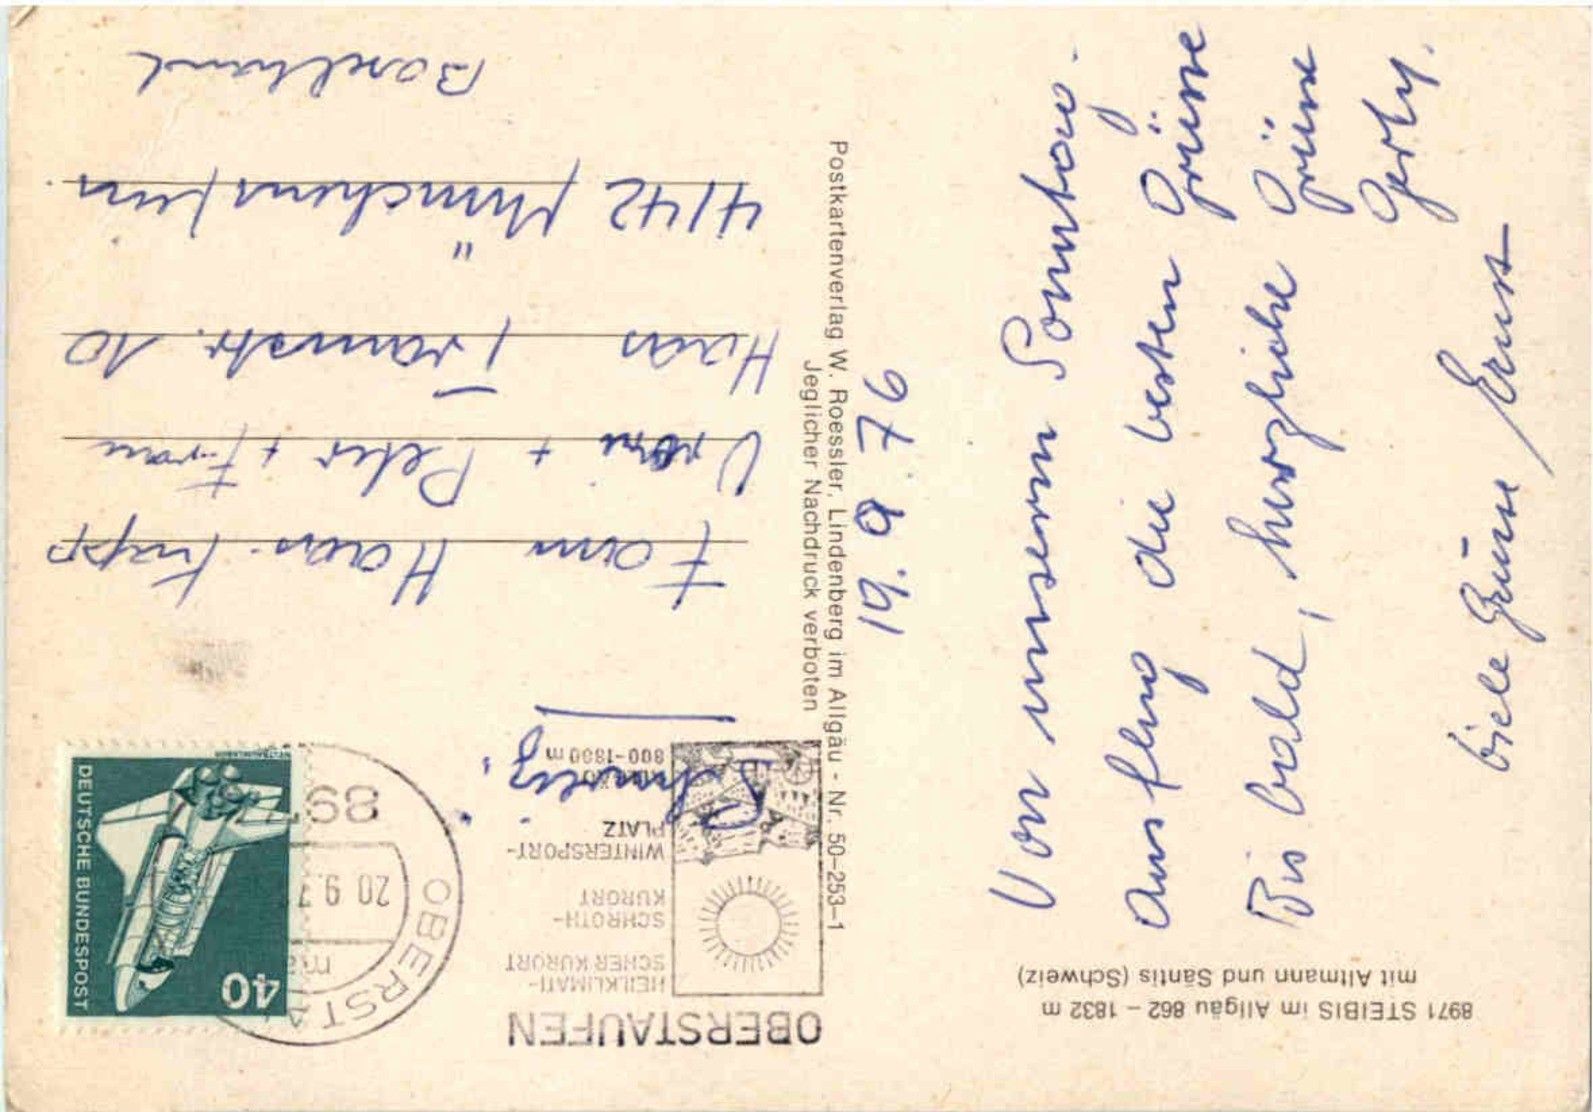 8971 STEIBIS im Allgäu 862 – 1832 m
mit Altmann und Säntis (Schweiz)
19.9.76
Von unserm Sonntag.
Ausflug die besten Grüsse
Bis bald, herzliche Grüsse
Gerty.
viele Grüsse Ernst
Postkartenverlag W. Roessler, Lindenberg im Allgäu - Nr. 50–253–1
Jeglicher Nachdruck verboten
OBERSTAUFEN
HEILKLIMATI-
SCHER KURORT
SCHROTH-
KURORT
WINTERSPORT-
PLATZ
800-1800 m
OBERSTA
20.9.7
897
40
DEUTSCHE BUNDESPOST
Schweiz.
Fam Haas-
Vroni + Peter +
Haas Tramstr. 10
4142 Münchenstein.
Baselland